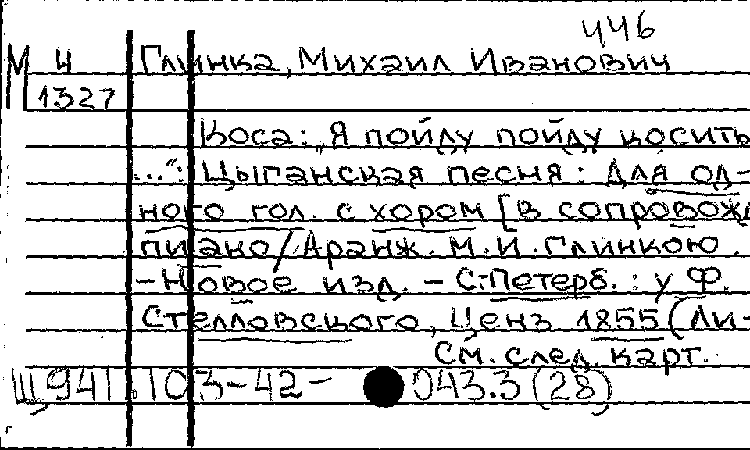 446
М 4 Глинка, Михаил Иванович
1327
Коса: „Я пойду пойду косить
...": Цыганская песня: Для од-
ного гол. с хором [в сопровожд
пиано/Аранж. М.И.Глинкою.
-Новое изд. - С.-Петерб.: у Ф.
Стелловского, Ценз 1855 (Ли-
См. след. карт.
Щ941.103-42- 043.3(28)